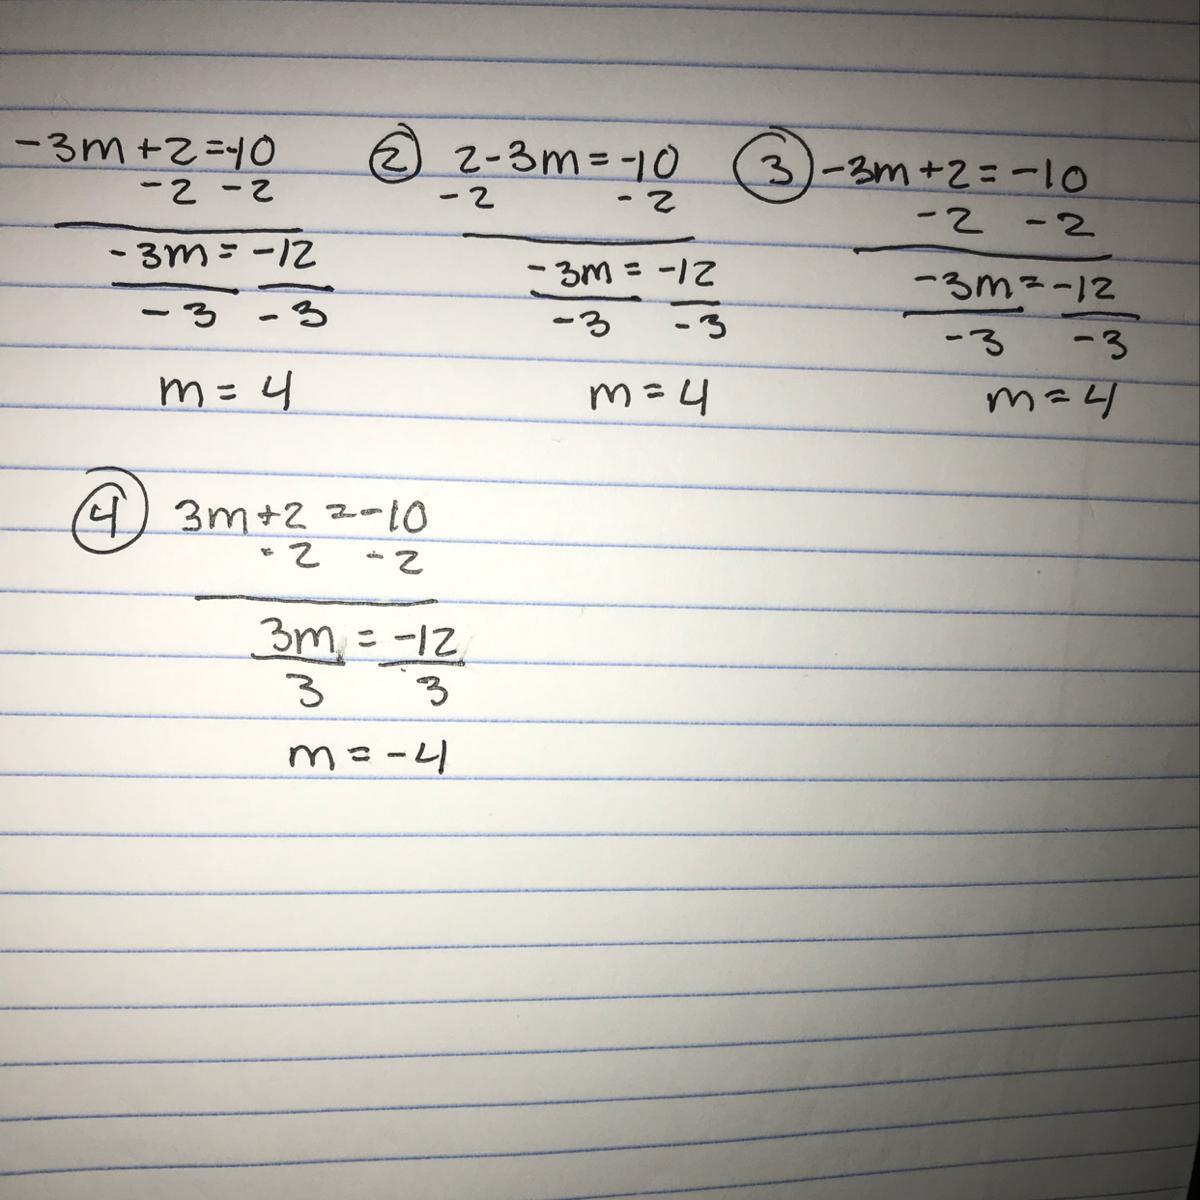 -3m+2=-10
-2 -2
-3m = -12
-3 -3
m = 4
② 2-3m = -10
-2 -2
-3m = -12
-3 -3
m = 4
③ -3m+2 = -10
-2 -2
-3m = -12
-3 -3
m = 4
④ 3m+2 = -10
-2 -2
3m = -12
3 3
m = -4